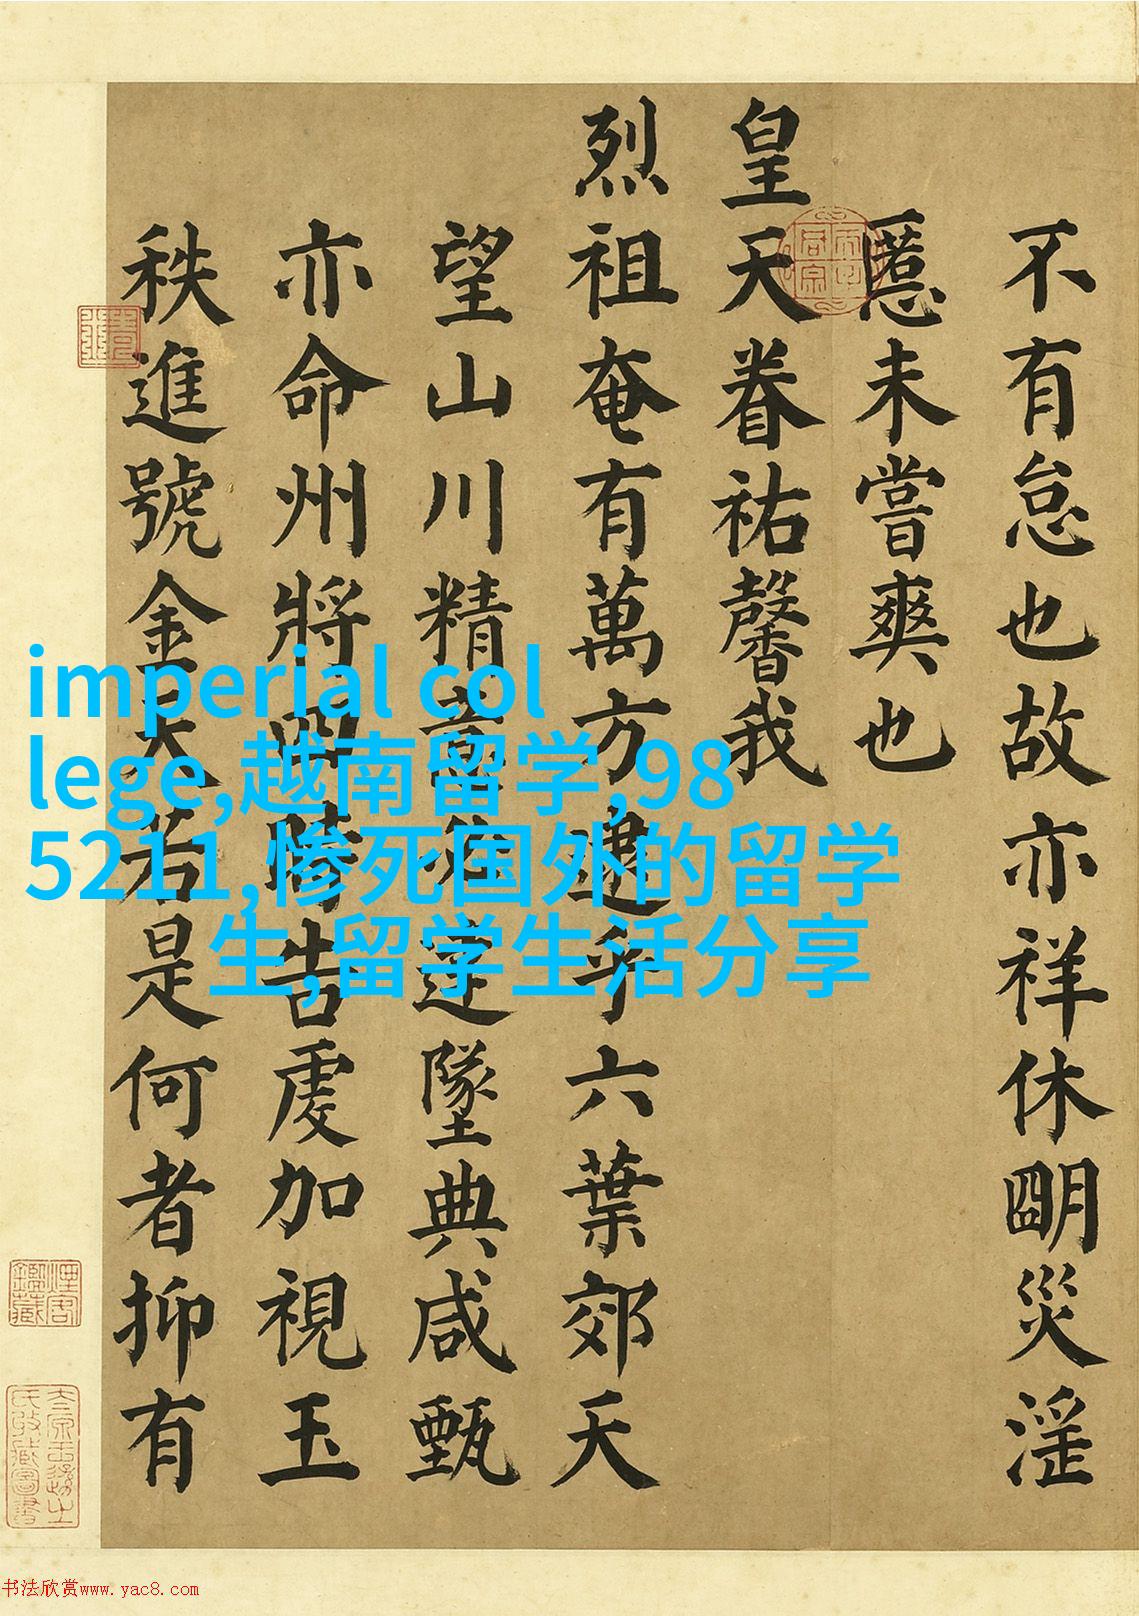 不有怠也故亦祥休朙災淫
慝未嘗爽也
皇天眷祐馨我
烈祖奄有萬方逮乎六葉郊天
望山川精意必達墜典咸甄
亦命州將四時告虔加視玉
秩進號金天若是何者抑有
imperial col
lege,越南留学,98
5211,惨死国外的留学
生,留学生活分享
书法欣赏www.yac8.com